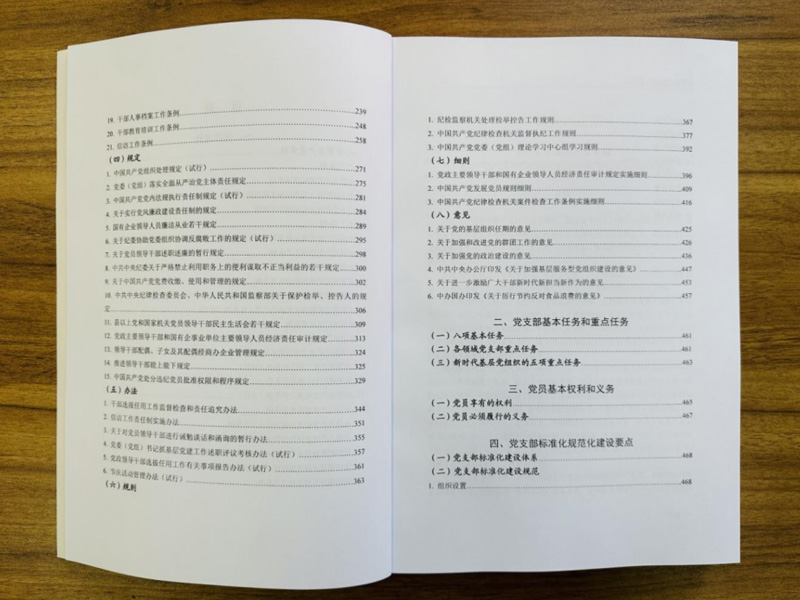 19. 干部人事档案工作条例……239
20. 干部教育培训工作条例……248
21. 信访工作条例……258
(四) 规定
1. 中国共产党组织处理规定（试行）……271
2. 党委（党组）落实全面从严治党主体责任规定……275
3. 中国共产党党内法规执行责任制规定（试行）……281
4. 关于实行党风廉政建设责任制的规定……284
5. 国有企业领导人员廉洁从业若干规定……289
6. 关于纪委协助党委组织协调反腐败工作的规定（试行）……295
7. 关于党员领导干部述职述廉的暂行规定……298
8. 中共中央纪委关于严格禁止利用职务上的便利谋取不正当利益的若干规定……300
9. 关于中国共产党党费收缴、使用和管理的规定……302
10. 中共中央纪律检查委员会、中华人民共和国监察部关于保护检举、控告人的规
定……306
11. 县以上党和国家机关党员领导干部民主生活会若干规定……309
12. 党政主要领导干部和国有企事业单位主要领导人员经济责任审计规定……313
13. 领导干部配偶、子女及其配偶经商办企业管理规定……320
14. 推进领导干部能上能下规定……325
15. 中国共产党处分违纪党员批准权限和程序规定……329
(五) 办法
1. 干部选拔任用工作监督检查和责任追究办法……344
2. 信访工作责任制实施办法……351
3. 关于对党员领导干部进行诫勉谈话和函询的暂行办法……355
4. 党委（党组）书记抓基层党建工作述职评议考核办法（试行）……357
5. 党政领导干部选拔任用工作有关事项报告办法（试行）……361
6. 节庆活动管理办法（试行）……363
(六) 规则
1. 纪检监察机关处理检举控告工作规则……367
2. 中国共产党纪律检查机关监督执纪工作规则……377
3. 中国共产党党委（党组）理论学习中心组学习规则……392
(七) 细则
1. 党政主要领导干部和国有企业领导人员经济责任审计规定实施细则……396
2. 中国共产党发展党员规则细则……409
3. 中国共产党纪律检查机关案件检查工作条例实施细则……416
(八) 意见
1. 关于党的基层组织任期的意见……425
2. 关于加强和改进党的群团工作的意见……426
3. 关于加强党的政治建设的意见……436
4. 中共中央办公厅印发《关于加强基层服务型党组织建设的意见》……447
5. 关于进一步激励广大干部新时代新担当新作为的意见……453
6. 中办国办印发《关于厉行节约反对食品浪费的意见》……457
二、党支部基本任务和重点任务
(一) 八项基本任务……461
(二) 各领域党支部重点任务……461
(三) 新时代基层党组织的五项重点任务……463
三、党员基本权利和义务
(一) 党员享有的权利……465
(二) 党员必须履行的义务……467
四、党支部标准化规范化建设要点
(一) 党支部标准化建设体系……468
(二) 党支部标准化建设规范……468
1. 组织设置……468